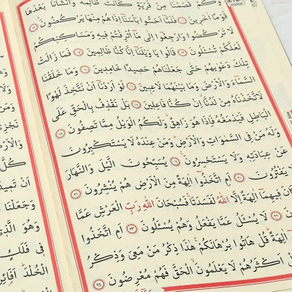 وَكَمْ قَصَمْنَا مِنْ قَرْيَةٍ كَانَتْ ظَالِمَةً وَاَنْشَأْنَا بَعْدَهَا
قَوْمًا اٰخَرِينَ ﴿١١﴾ فَلَمَّٓا اَحَسُّوا بَأْسَنَٓا اِذَا هُمْ مِنْهَا يَرْكُضُونَ ﴿١٢﴾
لَا تَرْكُضُوا وَارْجِعُٓوا اِلٰى مَٓا اُتْرِفْتُمْ فِيهِ وَمَسَاكِنِكُمْ
لَعَلَّكُمْ تُسْـَٔلُونَ ﴿١٣﴾ قَالُوا يَا وَيْلَنَٓا اِنَّا كُنَّا ظَالِمِينَ ﴿١٤﴾ فَمَا زَالَتْ
تِلْكَ دَعْوٰيهُمْ حَتّٰى جَعَلْنَاهُمْ حَصِيدًا خَامِدِينَ ﴿١٥﴾ وَمَا خَلَقْنَا
السَّمَٓاءَ وَالْاَرْضَ وَمَا بَيْنَهُمَا لَاعِبِينَ ﴿١٦﴾ لَوْ اَرَدْنَٓا اَنْ نَتَّخِذَ لَهْوًا
لَاتَّخَذْنَاهُ مِنْ لَدُنَّٓا اِنْ كُنَّا فَاعِلِينَ ﴿١٧﴾ بَلْ نَقْذِفُ بِالْحَقِّ عَلَى
الْبَاطِلِ فَيَدْمَغُهُ فَاِذَا هُوَ زَاهِقٌ وَلَكُمُ الْوَيْلُ مِمَّا تَصِفُونَ ﴿١٨﴾
وَلَهُ مَنْ فِي السَّمٰوَاتِ وَالْاَرْضِ وَمَنْ عِنْدَهُ لَا يَسْتَكْبِرُونَ
عَنْ عِبَادَتِهِ وَلَا يَسْتَحْسِرُونَ ﴿١٩﴾ يُسَبِّحُونَ الَّيْلَ وَالنَّهَارَ
يَفْتُرُونَ ﴿٢٠﴾ اَمِ اتَّخَذُٓوا اٰلِهَةً مِنَ الْاَرْضِ هُمْ يُنْشِرُونَ ﴿٢١﴾
فِيهِمَٓا اٰلِهَةٌ اِلَّا اللّٰهُ لَفَسَدَتَا فَسُبْحَانَ اللّٰهِ رَبِّ الْعَرْشِ عَمَّا
﴿٢٢﴾ لَا يُسْـَٔلُ عَمَّا يَفْعَلُ وَهُمْ يُسْـَٔلُونَ ﴿٢٣﴾ اَمِ اتَّخَذُوا
اٰلِهَةً قُلْ هَاتُوا بُرْهَانَكُمْ هٰذَا ذِكْرُ مَنْ مَعِيَ وَذِكْرُ
اَكْثَرُهُمْ لَا يَعْلَمُونَ الْحَقَّ فَهُمْ مُعْرِضُونَ ﴿٢٤﴾